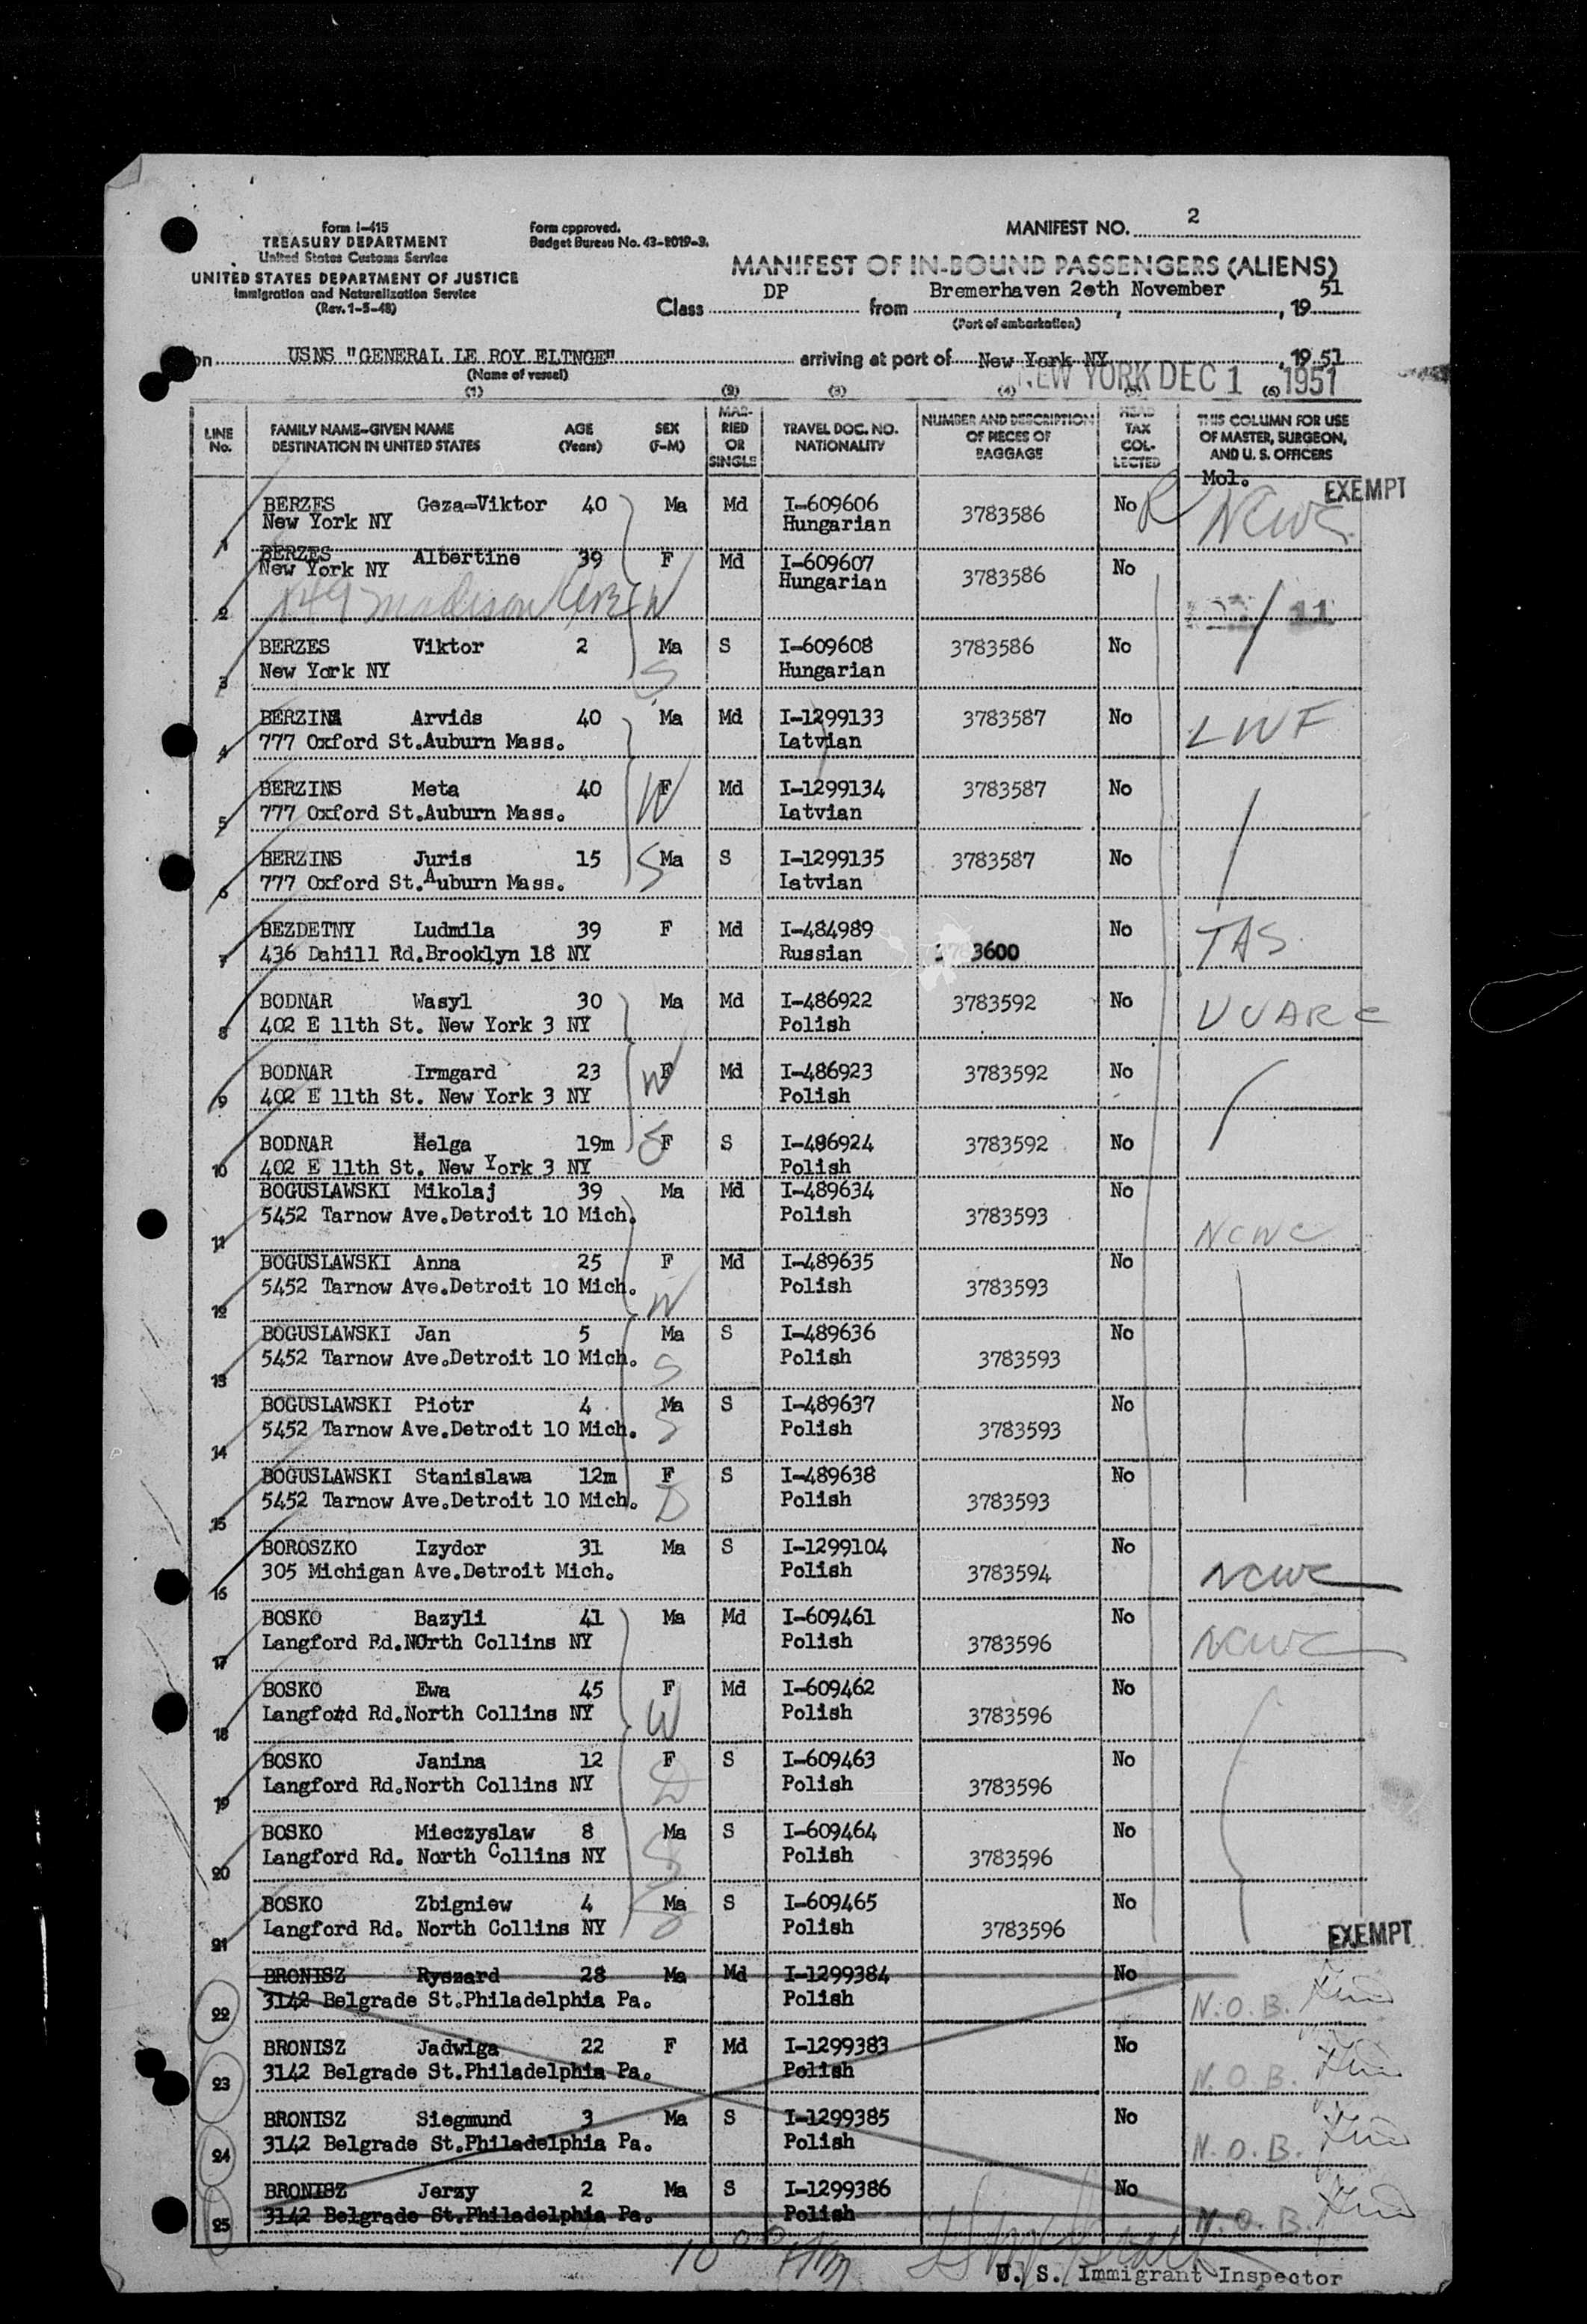 Form I-415
TREASURY DEPARTMENT
United States Customs Service
UNITED STATES DEPARTMENT OF JUSTICE
Immigration and Naturalization Service
(Rev. 1-5-48)
Form approved.
Budget Bureau No. 43-R019-3.
MANIFEST NO. 2
MANIFEST OF IN-BOUND PASSENGERS (ALIENS)
Class DP from Bremerhaven 20th November, 19 51
(Port of embarkation)
on USNS "GENERAL LE ROY ELTNGE" arriving at port of New York NY, 19 51
(Name of vessel)
NEW YORK DEC 1 1951
(1) (2) (3) (4) (5) (6)
LINE No. FAMILY NAME—GIVEN NAME DESTINATION IN UNITED STATES AGE (Years) SEX (F-M) MAR-RIED OR SINGLE TRAVEL DOC. NO. NATIONALITY NUMBER AND DESCRIPTION OF PIECES OF BAGGAGE HEAD TAX COL-LECTED THIS COLUMN FOR USE OF MASTER, SURGEON, AND U. S. OFFICERS
Mol. EXEMPT
1 BERZES Geza-Viktor 40 Ma Md I-609606 3783586 No R NCWC
New York NY Hungarian
2 BERZES Albertine 39 F Md I-609607 3783586 No
New York NY Hungarian
149 Madison W 11
3 BERZES Viktor 2 Ma S I-609608 3783586 No
New York NY Hungarian S
4 BERZINS Arvids 40 Ma Md I-1299133 3783587 No LWF
777 Oxford St.Auburn Mass. Latvian
5 BERZINS Meta 40 F Md I-1299134 3783587 No
777 Oxford St.Auburn Mass. W Latvian
6 BERZINS Juris 15 Ma S I-1299135 3783587 No
777 Oxford St.Auburn Mass. S Latvian
7 BEZDETNY Ludmila 39 F Md I-484989 No TAS
436 Dahill Rd.Brooklyn 18 NY Russian 3600
8 BODNAR Wasyl 30 Ma Md I-486922 3783592 No UUARC
402 E 11th St. New York 3 NY Polish
9 BODNAR Irmgard 23 F Md I-486923 3783592 No
402 E 11th St. New York 3 NY W Polish
10 BODNAR Helga 19m F S I-486924 3783592 No
402 E 11th St. New York 3 NY Polish
11 BOGUSLAWSKI Mikolaj 39 Ma Md I-489634 No
5452 Tarnow Ave.Detroit 10 Mich. Polish 3783593 NCWC
12 BOGUSLAWSKI Anna 25 F Md I-489635 No
5452 Tarnow Ave.Detroit 10 Mich. W Polish 3783593
13 BOGUSLAWSKI Jan 5 Ma S I-489636 No
5452 Tarnow Ave.Detroit 10 Mich. S Polish 3783593
14 BOGUSLAWSKI Piotr 4 Ma S I-489637 No
5452 Tarnow Ave.Detroit 10 Mich. S Polish 3783593
15 BOGUSLAWSKI Stanislawa 12m F S I-489638 No
5452 Tarnow Ave.Detroit 10 Mich. D Polish 3783593
16 BOROSZKO Izydor 31 Ma S I-1299104 No
305 Michigan Ave.Detroit Mich. Polish 3783594 NCWC
17 BOSKO Bazyli 41 Ma Md I-609461 No
Langford Rd.NOrth Collins NY Polish 3783596 NCWC
18 BOSKO Ewa 45 F Md I-609462 No
Langford Rd.North Collins NY W Polish 3783596
19 BOSKO Janina 12 F S I-609463 No
Langford Rd.North Collins NY D Polish 3783596
20 BOSKO Mieczyslaw 8 Ma S I-609464 No
Langford Rd. North Collins NY S Polish 3783596
21 BOSKO Zbigniew 4 Ma S I-609465 No
Langford Rd. North Collins NY S Polish 3783596 EXEMPT
22 BRONISZ Ryszard 28 Ma Md I-1299384 No
3142 Belgrade St.Philadelphia Pa. Polish N.O.B.
23 BRONISZ Jadwiga 22 F Md I-1299383 No
3142 Belgrade St.Philadelphia Pa. Polish N.O.B.
24 BRONISZ Siegmund 3 Ma S I-1299385 No
3142 Belgrade St.Philadelphia Pa. Polish N.O.B.
25 BRONISZ Jerzy 2 Ma S I-1299386 No
3142 Belgrade St.Philadelphia Pa. Polish N.O.B.
10 00 AM
U. S. Immigrant Inspector